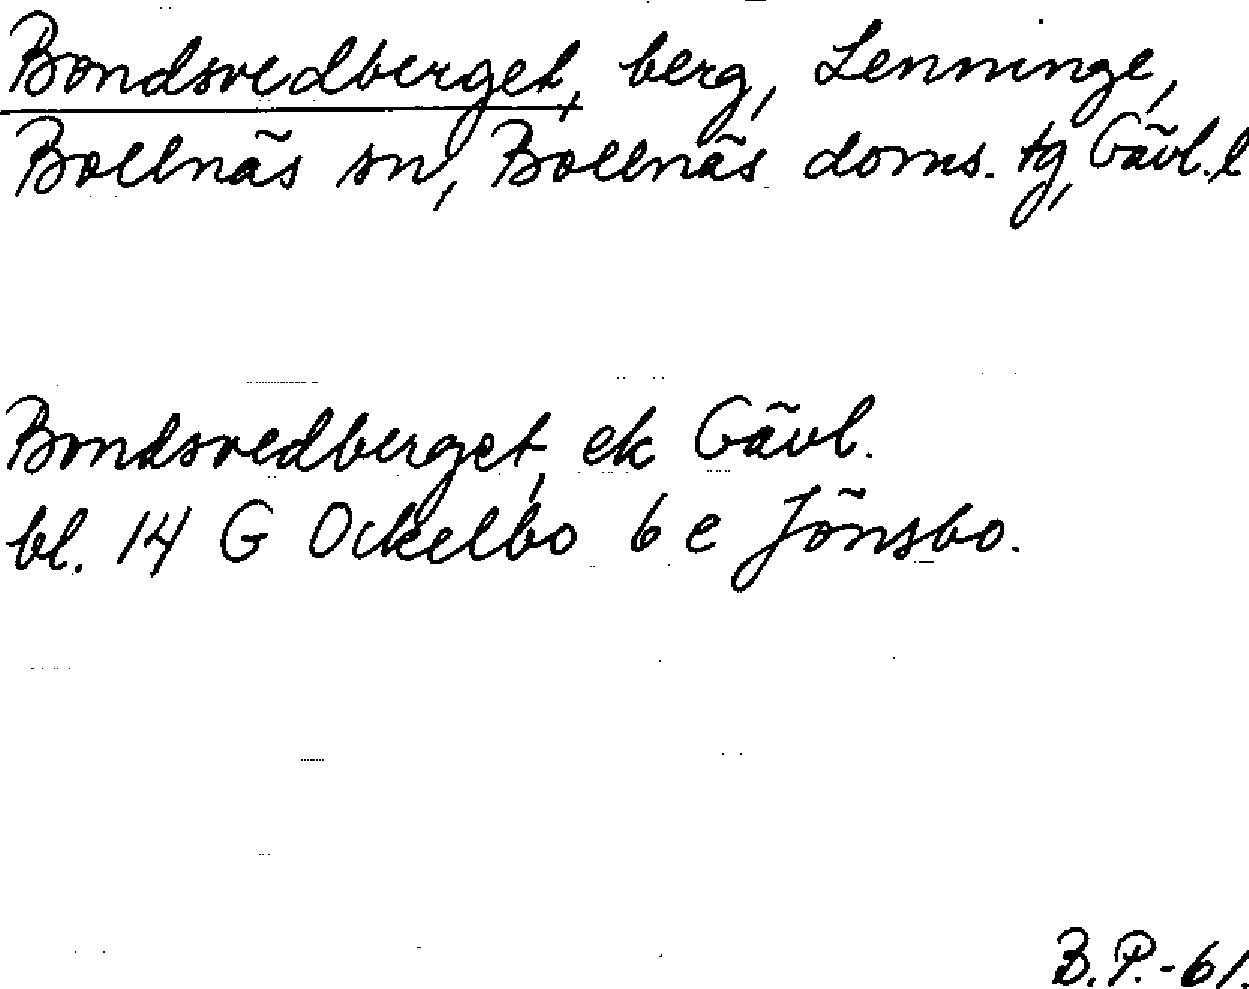 Bondsvedberget, berg, Lenninge,
Bollnäs sn, Bollnäs doms. tg, Gävl. l
Bondsvedberget, ek Gävl.
bl. 14 G Ockelbo 6 e Jönsbo.
B.P.-61.